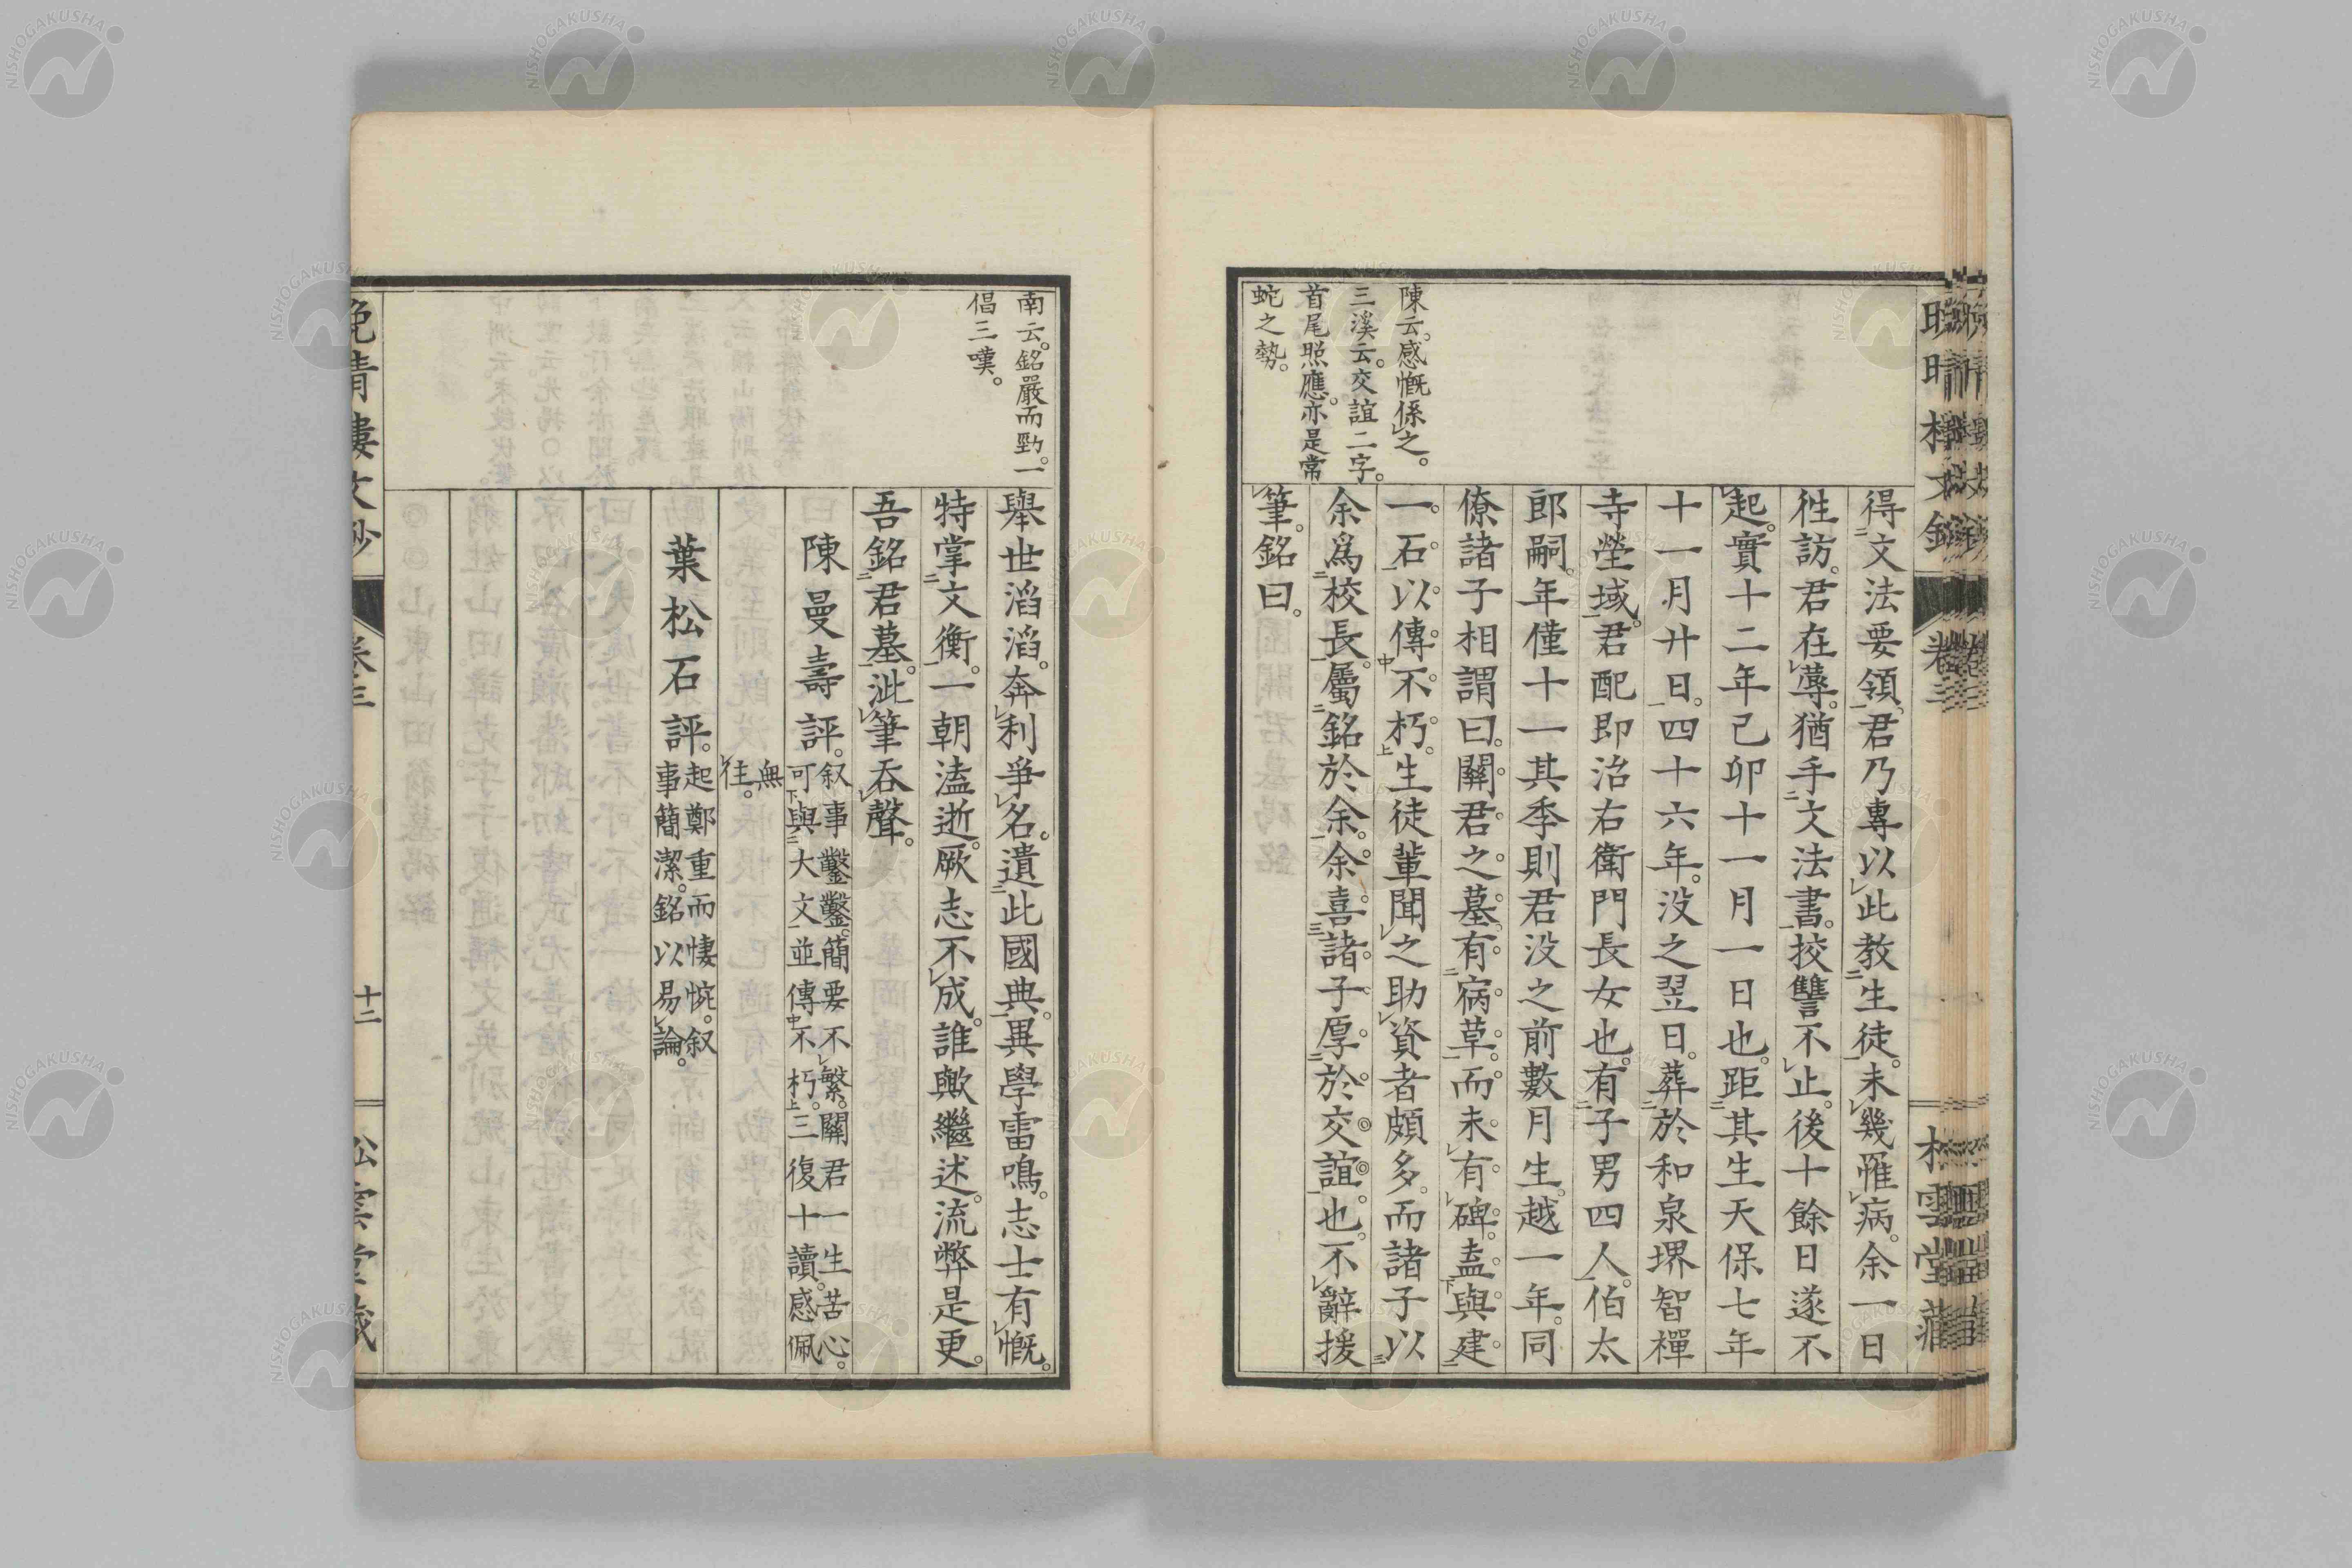 陳云。感慨係之。
三溪云。交誼二字。
首尾照應。亦是常
蛇之勢。
得文法要領。君乃專以此教生徒。未幾罹病。余一日
徃訪。君在蓐。猶手文法書。挍讐不止。後十餘日遂不
起。實十二年己卯十一月一日也。距其生天保七年
十一月廾日。四十六年。没之翌日。葬於和泉堺智禪
寺塋域。君配即治右衛門長女也。有子男四人。伯太
郎嗣。年僅十一其季則君没之前數月生。越一年。同
僚諸子相謂曰。關君之墓。有病草。而未有碑。盍與建
一石以傳不朽。生徒輩聞之助資者頗多。而諸子以
余爲校長。屬銘於余。余喜諸子厚於交誼也。不辭援
筆。銘曰。
南云。銘嚴而勁。一
倡三嘆。
舉世滔滔。奔利爭名。遺此國典。異學雷鳴。志士有慨。
特掌文衡。一朝溘逝。厥志不成。誰歟繼述。流弊是更。
吾銘君墓。泚筆呑聲。
陳曼壽評。叙事鑿鑿。簡要不繁。關君一生苦心。
可與大文並傳不朽。三復十讀。感佩
無
徃。
葉松石評。起鄭重而悽惋。叙
事簡潔。銘以易論。
晩晴樓文鈔
卷三
十二
松雲堂藏